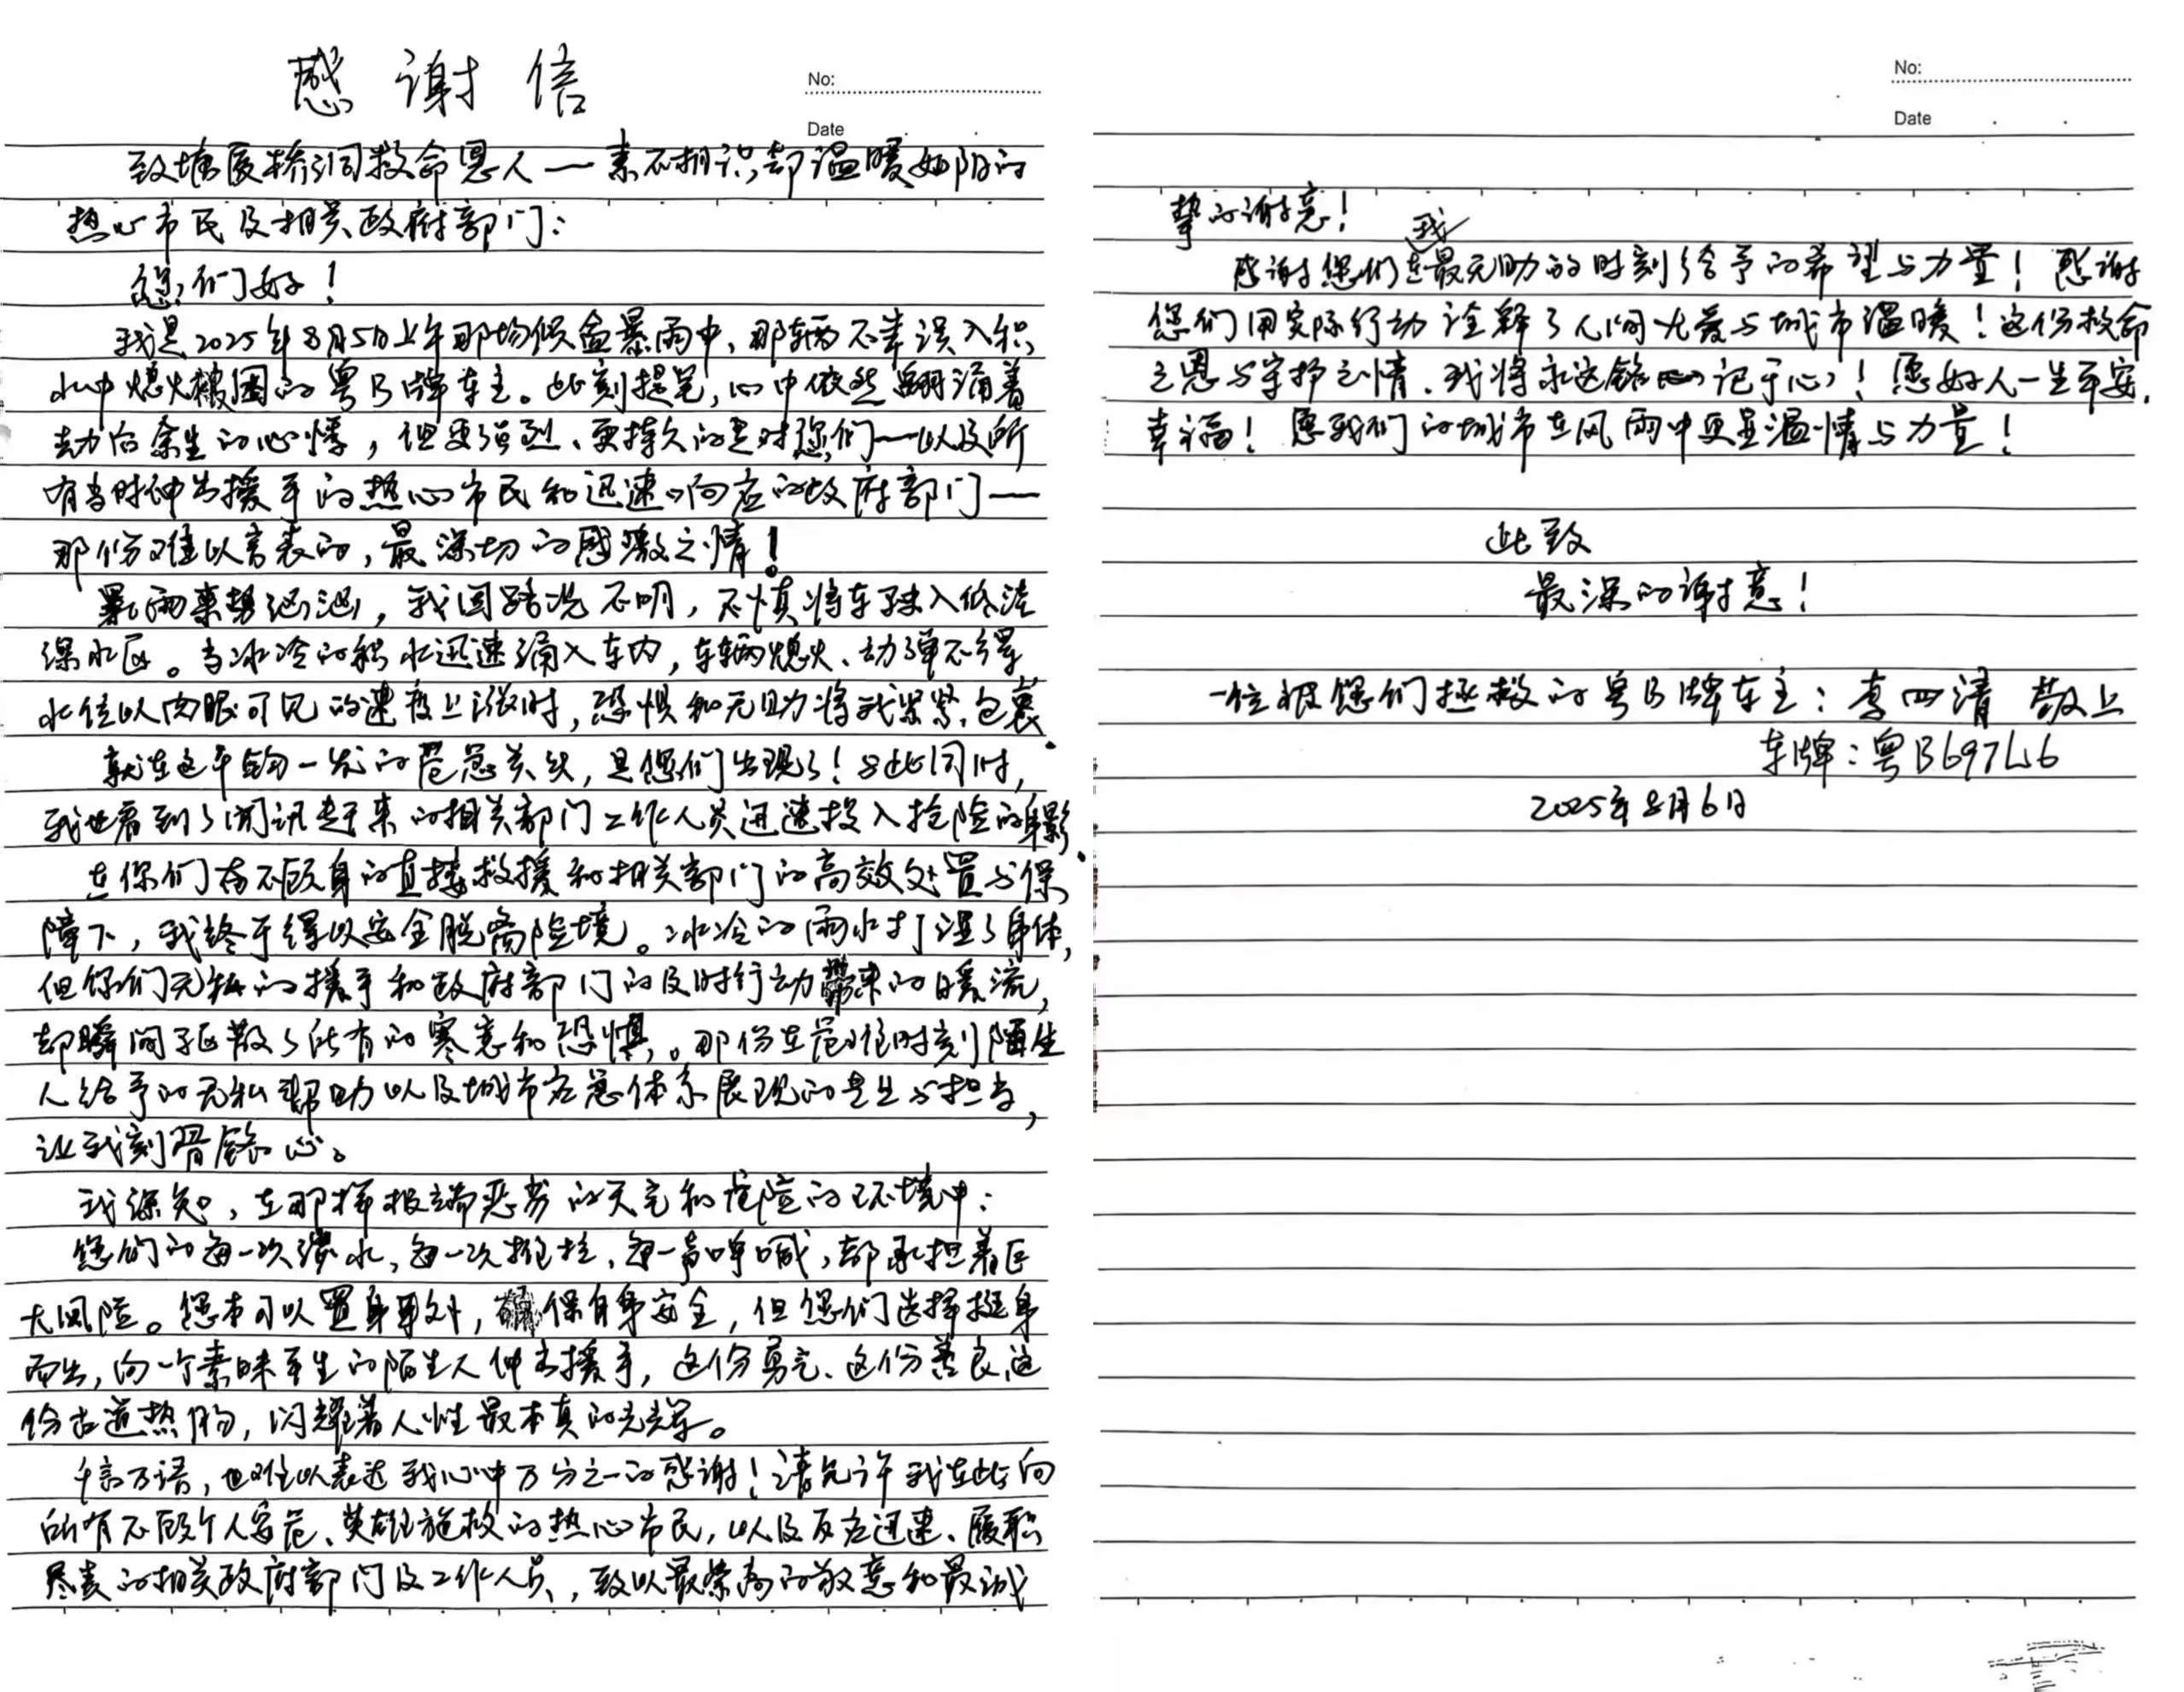 感谢信
No:
Date
致塘厦桥洞救命恩人——素不相识,却温暖如阳的
热心市民及相关政府部门:
您们好!
我是2025年8月5日上午那场倾盆暴雨中,那辆不幸误入积
水中熄火被困的粤B牌车主。此刻提笔,心中依然翻涌着
劫后余生的心悸,但更强烈、更持久的是对您们——以及所
有当时伸出援手的热心市民和迅速响应的政府部门——
那份难以言表的,最深切的感激之情!
暴雨来势汹汹,我因路况不明,不慎将车驶入低洼
深水区。当冰冷的积水迅速涌入车内,车辆熄火、动弹不得
水位以肉眼可见的速度上涨时,恐惧和无助将我紧紧包裹.
就在这千钧一发的危急关头,是您们出现了!与此同时,
我也看到了闻讯赶来的相关部门工作人员迅速投入抢险的身影.
在你们奋不顾身的直接救援和相关部门的高效处置与保
障下,我终于得以安全脱离险境。冰冷的雨水打湿了身体,
但你们无私的援手和政府部门的及时行动带来的暖流,
却瞬间驱散了所有的寒意和恐惧。那份在危难时刻陌生
人给予的无私帮助以及城市应急体系展现的是且与担当,
让我刻骨铭心。
我深知,在那样极端恶劣的天气和危险的环境中:
您们的每一次涉水,每一次推拉,每一声呼喊,都承担着巨
大风险。您本可以置身事外,保自身安全,但您们选择挺身
而出,向一个素昧平生的陌生人伸出援手,这份勇气、这份善良,这
份古道热肠,闪耀着人性最本真的光辉。
千言万语,也难以表达我心中万分之一的感谢!请允许我在此向
所有不顾个人安危、英雄施救的热心市民,以及反应迅速、履职
尽责的相关政府部门及工作人员,致以最崇高的敬意和最诚
No:
Date
挚的谢意!
感谢您们在我最无助的时刻给予的希望与力量!感谢
您们用实际行动诠释了人间大爱与城市温暖!这份救命
之恩与守护之情,我将永远铭记于心!愿好人一生平安,
幸福!愿我们的城市在风雨中更显温情与力量!
此致
最深的谢意!
一位被您们拯救的粤B牌车主:李四清 敬上
车牌:粤B697L6
2025年8月6日